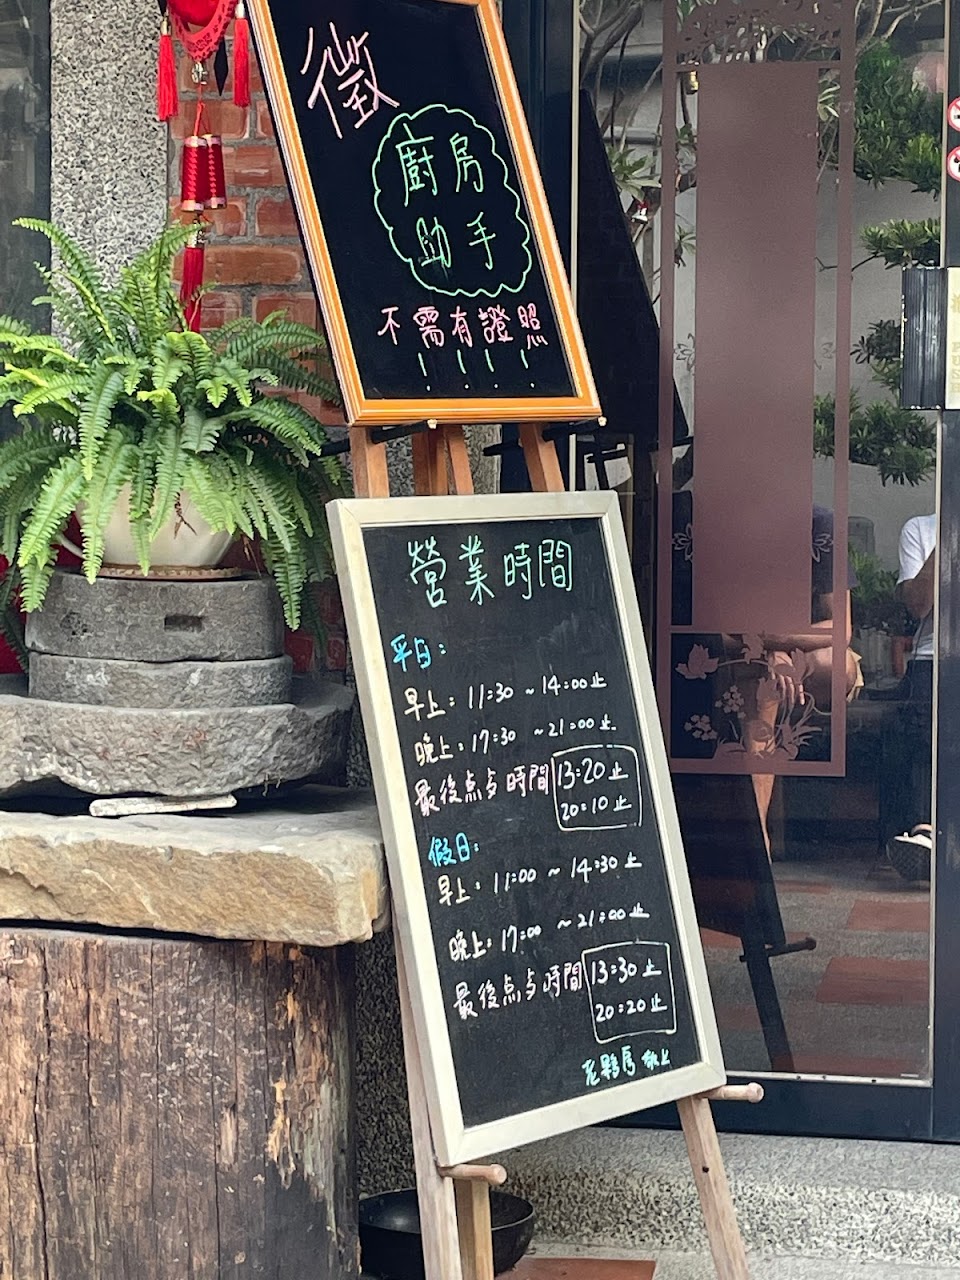 徵
廚房
助手
不需有證照
! ! ! !
營業時間
平日:
早上: 11:30 ~ 14:00止
晚上: 17:30 ~21:00止.
最後点歺時間 13:20止
20:10止
假日:
早上: 11:00 ~ 14:30止
晚上: 17:00 ~21:00止
最後点歺時間 13:30止
20:20止
敬上